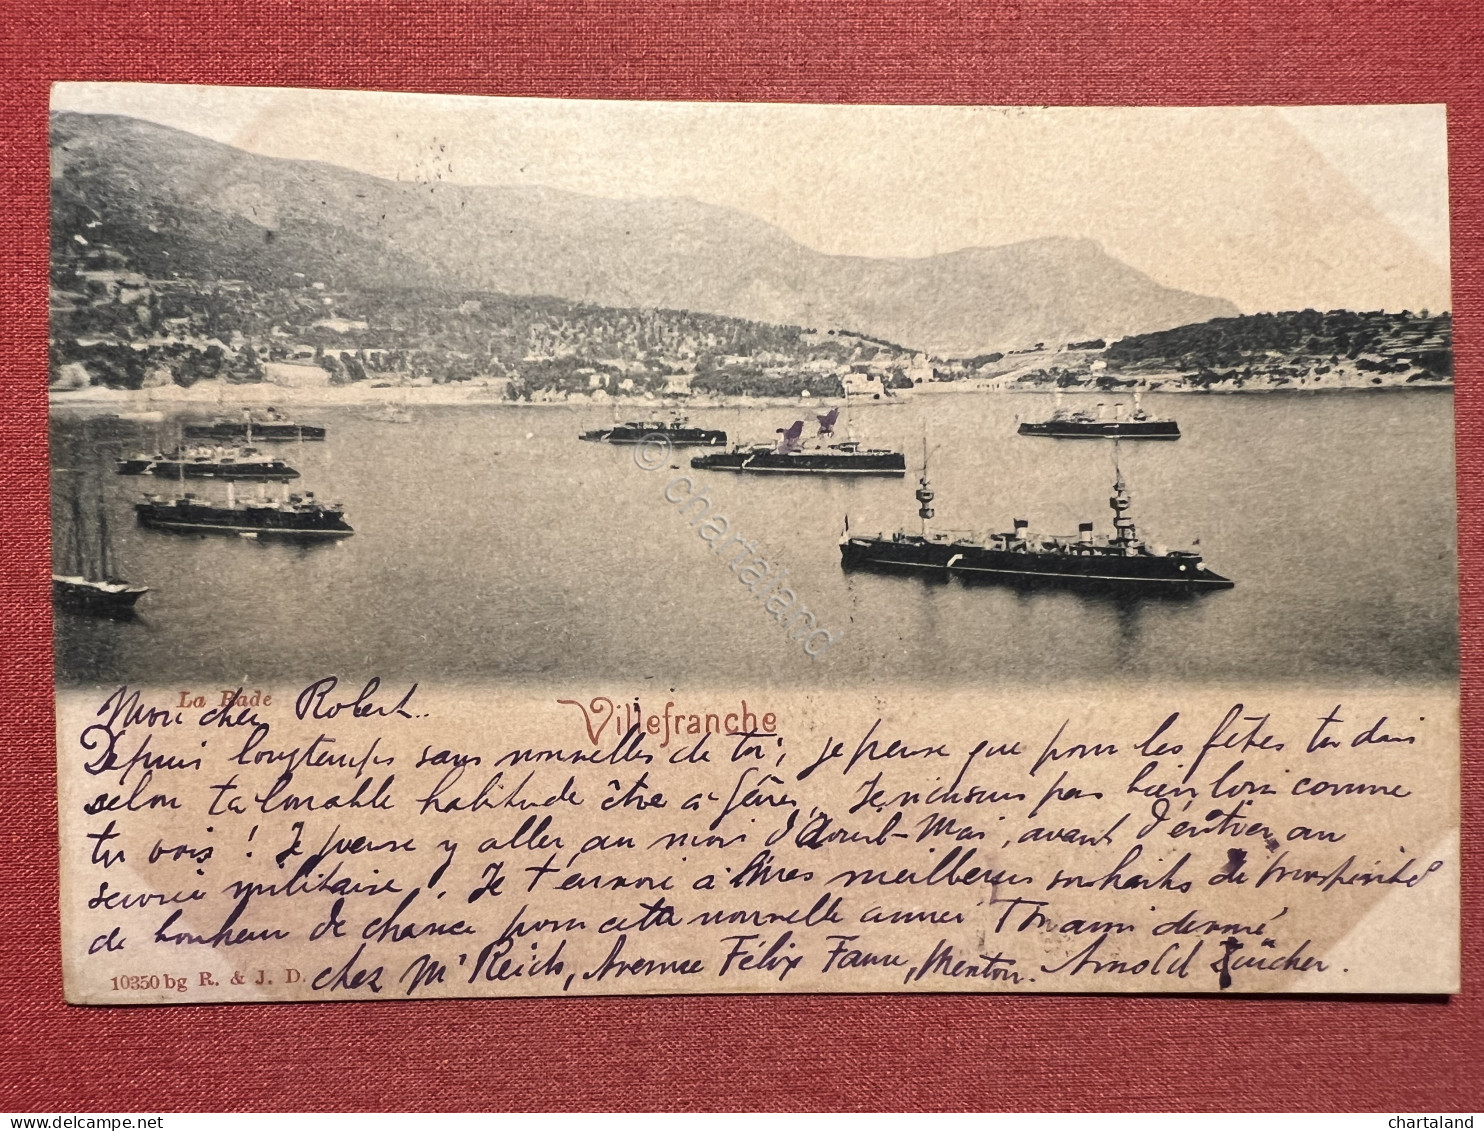 © chartaland
La Rade
Villefranche
Mon cher Robert..
Depuis longtemps sans nouvelles de toi, je pense que pour les fêtes tu dois
selon ta louable habitude être à Gênes, Je n'en suis pas bien loin comme
tu vois ! Je pense y aller au mois d'Avril-Mai, avant d'entrer au
service militaire. Je t'envoie meilleurs souhaits de prospérité
de bonheur de chance pour cette nouvelle année Ton ami dévoué,
chez Mr Reich, Avenue Félix Faure, Menton. Arnold Zürcher.
10350 bg R. & J. D.
www.delcampe.net
chartaland